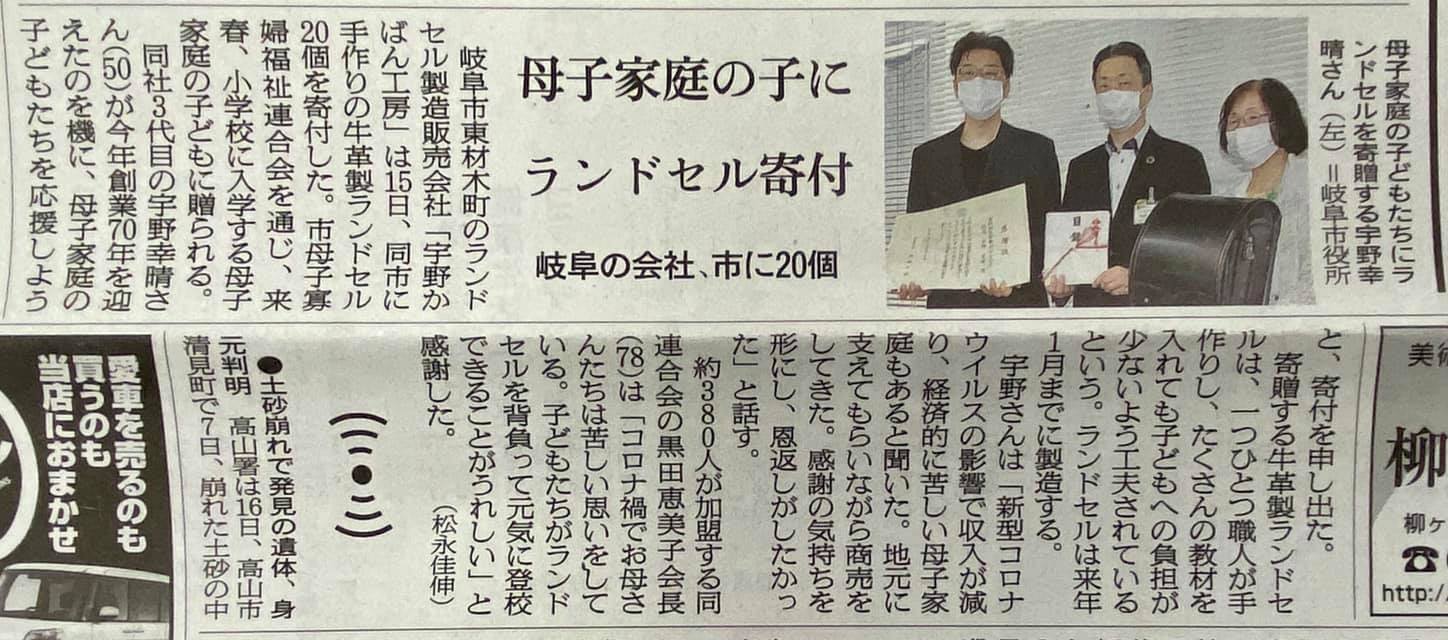 母子家庭の子どもたちにラ
ンドセルを寄贈する宇野幸
晴さん（左）＝岐阜市役所
目録
母子家庭の子に
ランドセル寄付
岐阜の会社、市に20個
岐阜市東材木町のランド
セル製造販売会社「宇野か
ばん工房」は15日、同市に
手作りの牛革製ランドセル
20個を寄付した。市母子寡
婦福祉連合会を通じ、来
春、小学校に入学する母子
家庭の子どもに贈られる。
同社3代目の宇野幸晴さ
ん(50)が今年創業70年を迎
えたのを機に、母子家庭の
子どもたちを応援しよう
と、寄付を申し出た。
寄贈する牛革製ランドセ
ルは、一つひとつ職人が手
作りし、たくさんの教材を
入れても子どもへの負担が
少ないよう工夫されている
という。ランドセルは来年
1月までに製造する。
宇野さんは「新型コロナ
ウイルスの影響で収入が減
り、経済的に苦しい母子家
庭もあると聞いた。地元に
支えてもらいながら商売を
してきた。感謝の気持ちを
形にし、恩返しがしたかっ
た」と話す。
約380人が加盟する同
連合会の黒田恵美子会長
(78)は「コロナ禍でお母さ
んたちは苦しい思いをして
いる。子どもたちがランド
セルを背負って元気に登校
できることがうれしい」と
感謝した。
（松永佳伸）
●土砂崩れで発見の遺体、身
元判明　高山署は16日、高山市
清見町で7日、崩れた土砂の中
愛車を売るのも
買うのも
当店におまかせ
美術
柳
柳ケ
☎
http:/